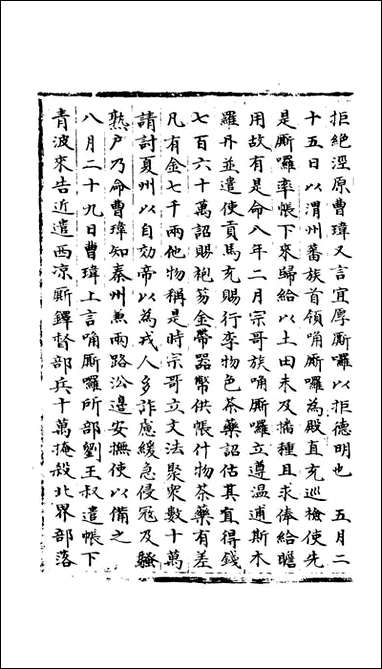 拒絶涇原曹瑋又言宜厚厮囉以拒德明也　五月二
十五日以渭州蕃族首領唃厮囉為殿直充巡檢使先
是厮囉率帳下來歸給以土田未及播種且求俸給贍
用故有是命八年二月宗哥族唃厮囉立遵温逋斯木
羅丹並遣使貢馬充賜行李物色茶藥詔估其直得錢
七百六十萬詔賜袍笏金帶器幣供帳什物茶藥有差
凡有金七千兩他物稱是時宗哥立文法聚衆數十萬
請討夏州以自効帝以為戎人多詐慮緩急侵冦及騷
熟户乃命曹瑋知秦州兼兩路沿邊安撫使以備之
八月二十九日曹瑋上言唃厮囉所部劉王叔遣帳下
青波來告近遣西凉厮鐸督部兵十萬掩殺北界部落